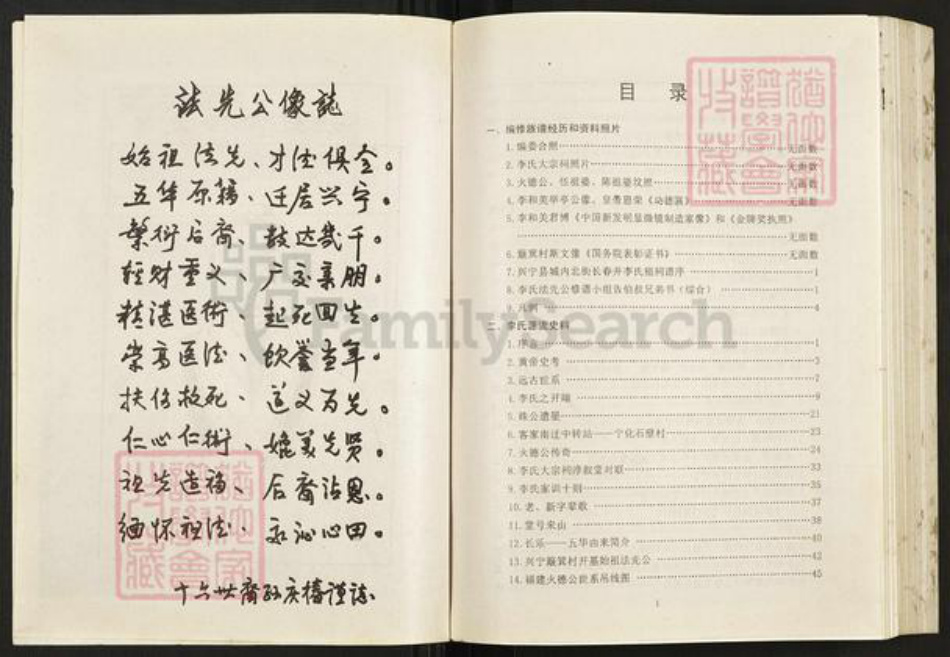 法先公像誌
始祖法先、才法俱全。
五华原籍、迁居兴宁。
蘩衍后裔、鼓达幾千。
轻财重义、广交亲朋。
精湛医術、起死回生。
崇高医法、饮誉当年。
扶伤救死、道义为先。
仁心仁術、媲美先贤。
祖先造福、后裔沾恩。
缅怀祖法、永沁心田。
十六世裔孙庆椿谨誌
目 录
一、编修族谱经历和资料照片
1.编委合照 无面数
2.李氏大宗祠照片 无面数
3.火德公、伍祖婆、陈祖婆坟照 无面数
4.李和美举亭公像、皇帝恩荣《动德匾》 无面数
5.李和关君博《中国新发明显微镜制造家像》和《金牌奖执照》
无面数
6.簸箕村斯文像《国务院表彰证书》 无面数
7.兴宁县城内北街长春井李氏祖祠谱序 1
8.李氏法先公修谱小组告伯叔兄弟书(综合) 1
9.凡例 4
二、李氏源流史料
1.序言 1
2.黄帝史考 3
3.远古世系 7
4.李氏之开端 9
5.珠公遗晏 21
6.客家南迁中转站——宁化石壁村 23
7.火德公传奇 24
8.李氏大宗祠淳叙堂对联 33
9.李氏家训十则 35
10.老、新字辈歌 37
11.堂号来由 38
12.长乐——五华由来简介 40
13.兴宁簸箕村开基始祖法先公 42
14.福建火德公世系吊线图 45
1
FamilySearch